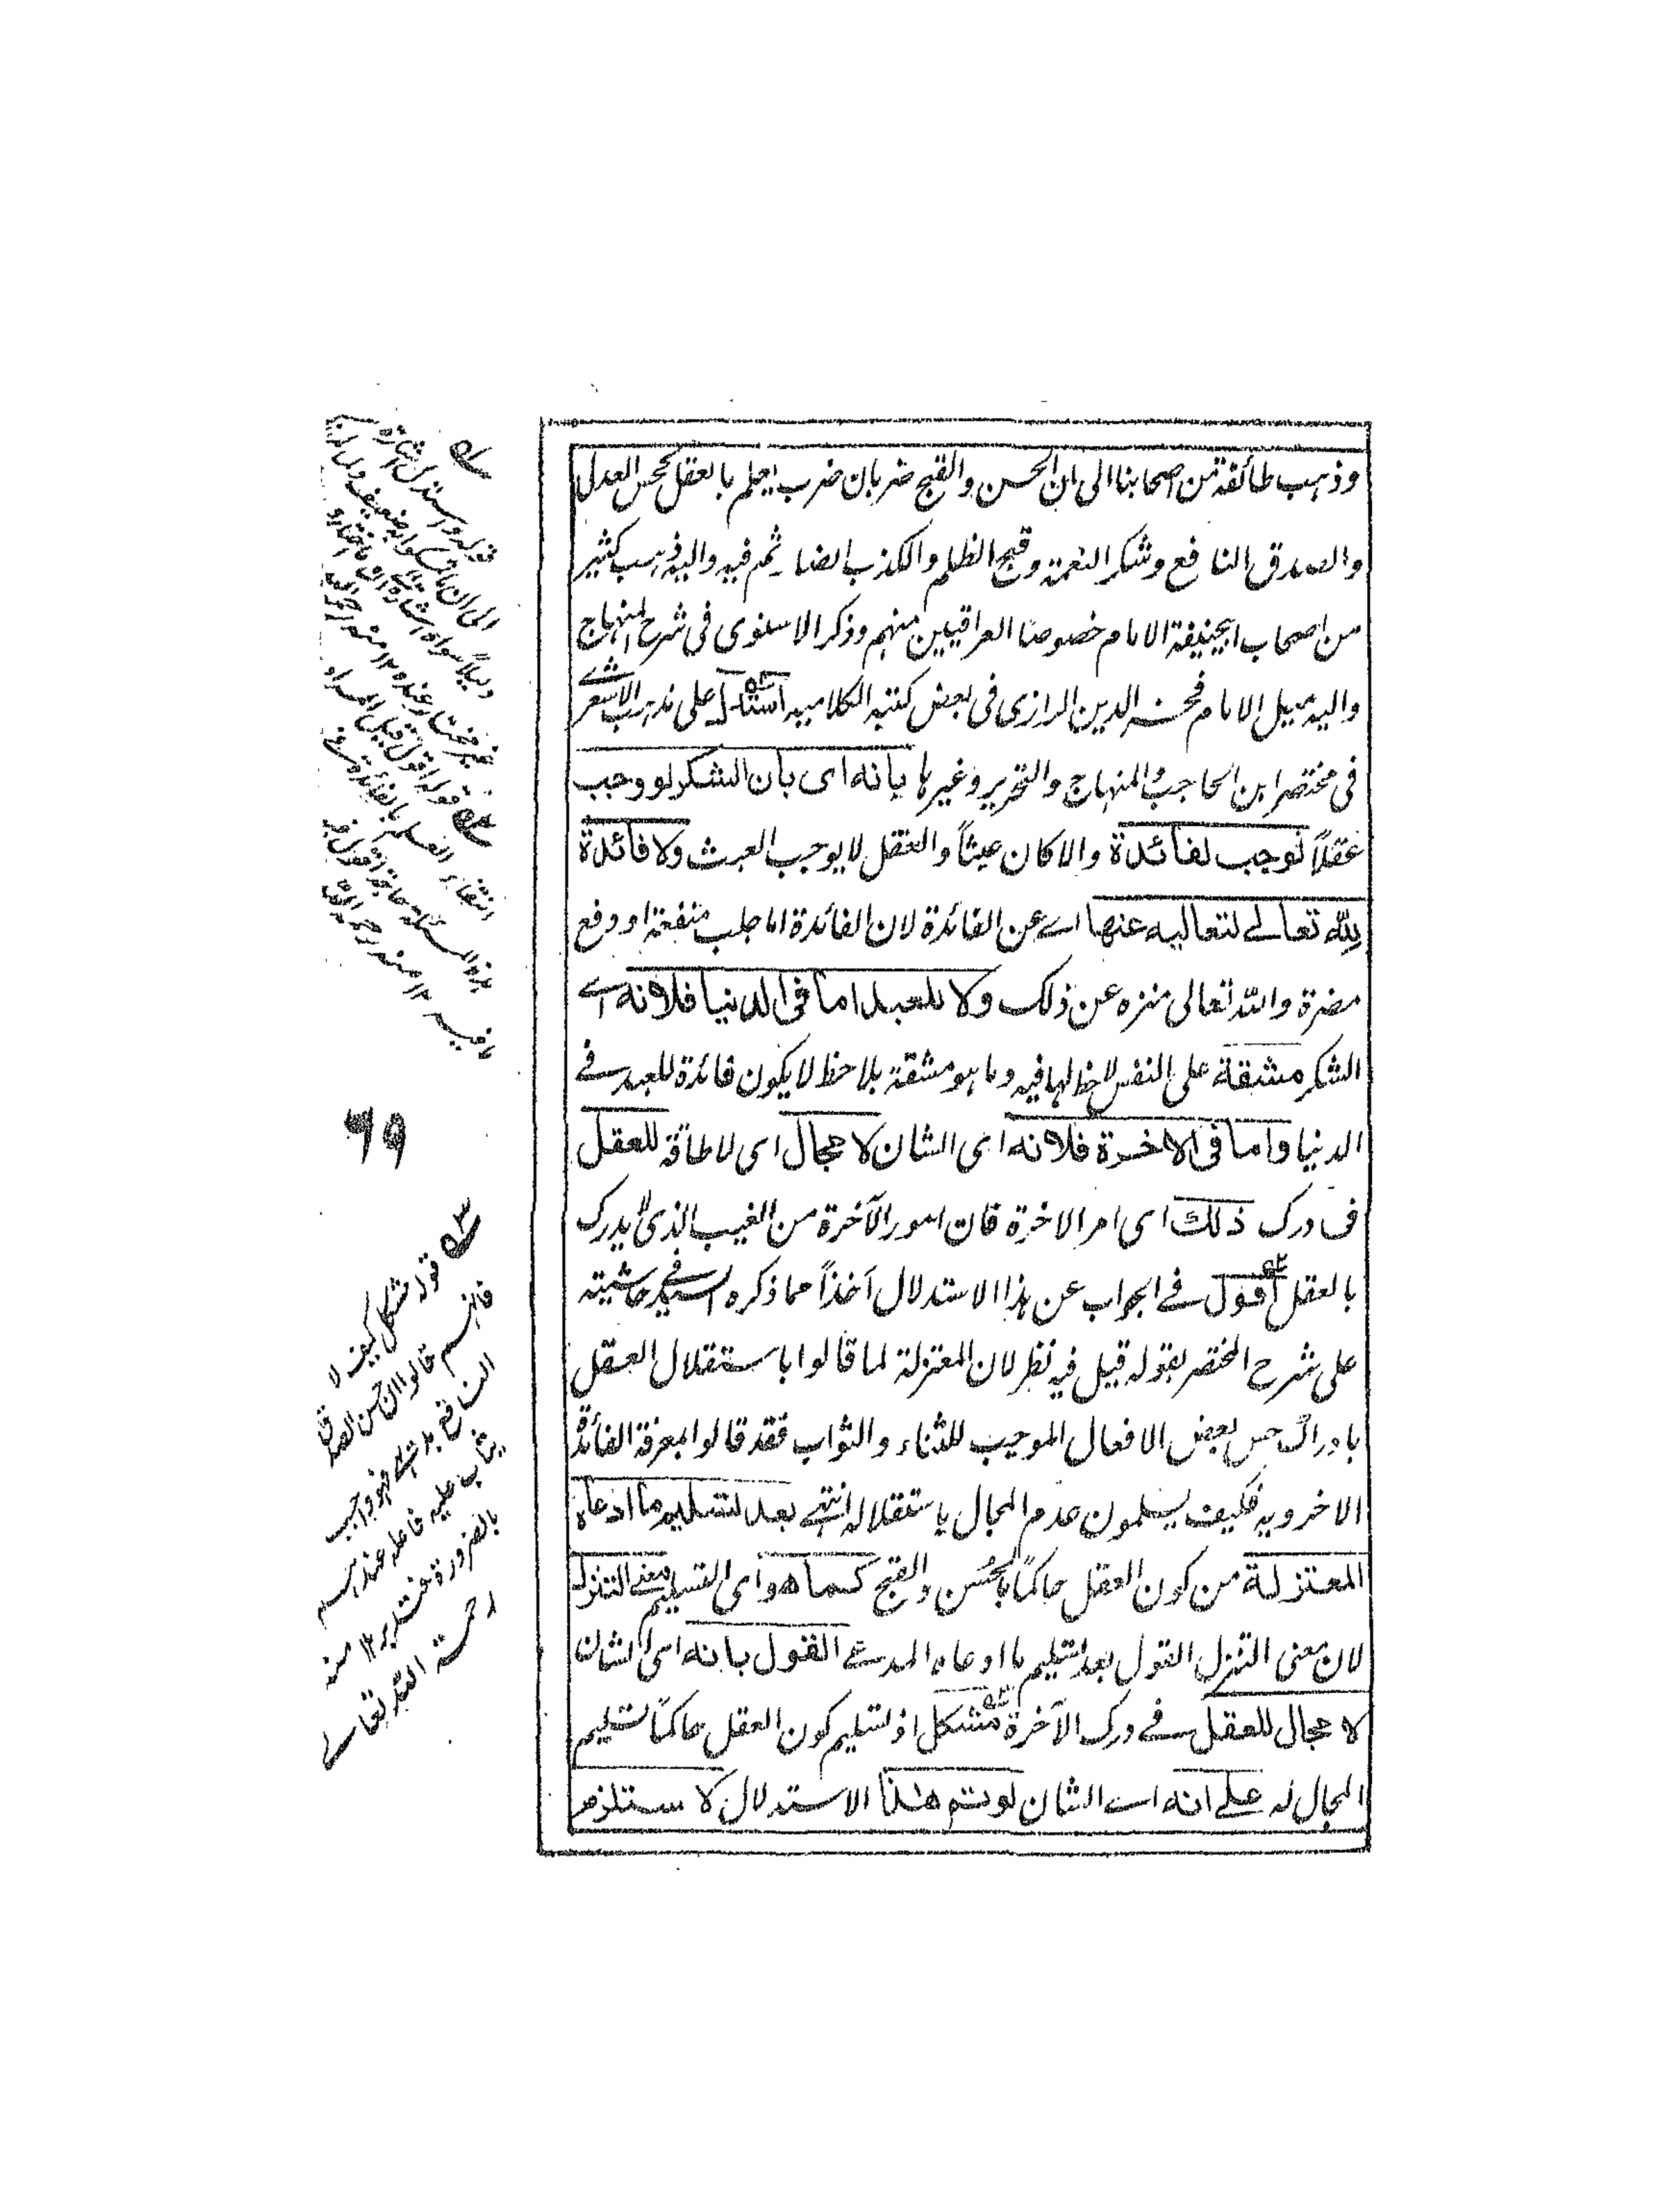 وذهب طائفة من اصحابنا الى ان الحسن والقبح ضربان ضرب يعلم بالعقل كحسن العدل
والصدق النافع وشكر النعمة وقبح الظلم والكذب الضار ثم فيه واليه ذهب كثير
من اصحاب ابيحنيفة الامام خصوصا العراقيين منهم وذكر الاسنوى فى شرح المنهاج
واليه ميل الامام فخر الدين الرازى فى بعض كتبه الكلاميه استدل على مذهب الاشعرى
فى مختصر ابن الحاجب والمنهاج والتحرير وغيرها بانه اى بان الشكر لو وجب
عقلاً لوجب لفائدة والا كان عبثاً والعقل لا يوجب العبث ولا فائدة
لله تعالے لتعاليه عنها اے عن الفائدة لان الفائدة اما جلب منفعة او دفع
مضرة والله تعالى منزه عن ذلك ولا للعبد اما فى الدنيا فلانه اے
الشكر مشقة على النفس لا حظ لها فيه وما هو مشقة بلا حظ لا يكون فائدة للعبد فے
الدنيا واما فى الاخرة فلانه اى الشان لا مجال اى لا طاقة للعقل
فى درك ذلك اى امر الاخرة فان امور الآخرة من الغيب الذى لا يدرك
بالعقل اقول فے الجواب عن هذا الاستدلال آخذاً مما ذكره السيد فے حاشيته
على شرح المختصر بقوله قيل فيه نظر لان المعتزلة لما قالوا باستقلال العقل
بادراك حسن بعض الافعال الموجب للثناء والثواب فقد قالوا بمعرفة الفائدة
الاخرويه فكيف يسلمون عدم المجال باستقلاله انتهے بعد تسليم ما ادعاه
المعتزلة من كون العقل حاكمًا بالحسن والقبح كما هو اى التسليم معنے التنزل
لان معنى التنزل القول بعد تسليم ما ادعاه المدعے القول بانه اى الشان
لا مجال للعقل فے درك الآخرة مشكل اذ تسليم كون العقل حاكمًا تسليم
المجال له علے انه اے الشان لو تم هذا الاستدلال لاستلزم
۶۹
قوله مشكل كيف لا
فانهم قالوا ان حسن الصدق
النافع بديهے فهو واجب
يثاب عليه فاعله عندهم
بالضرورة فتدبر ۱۲ منه
رحمة الله تعالے